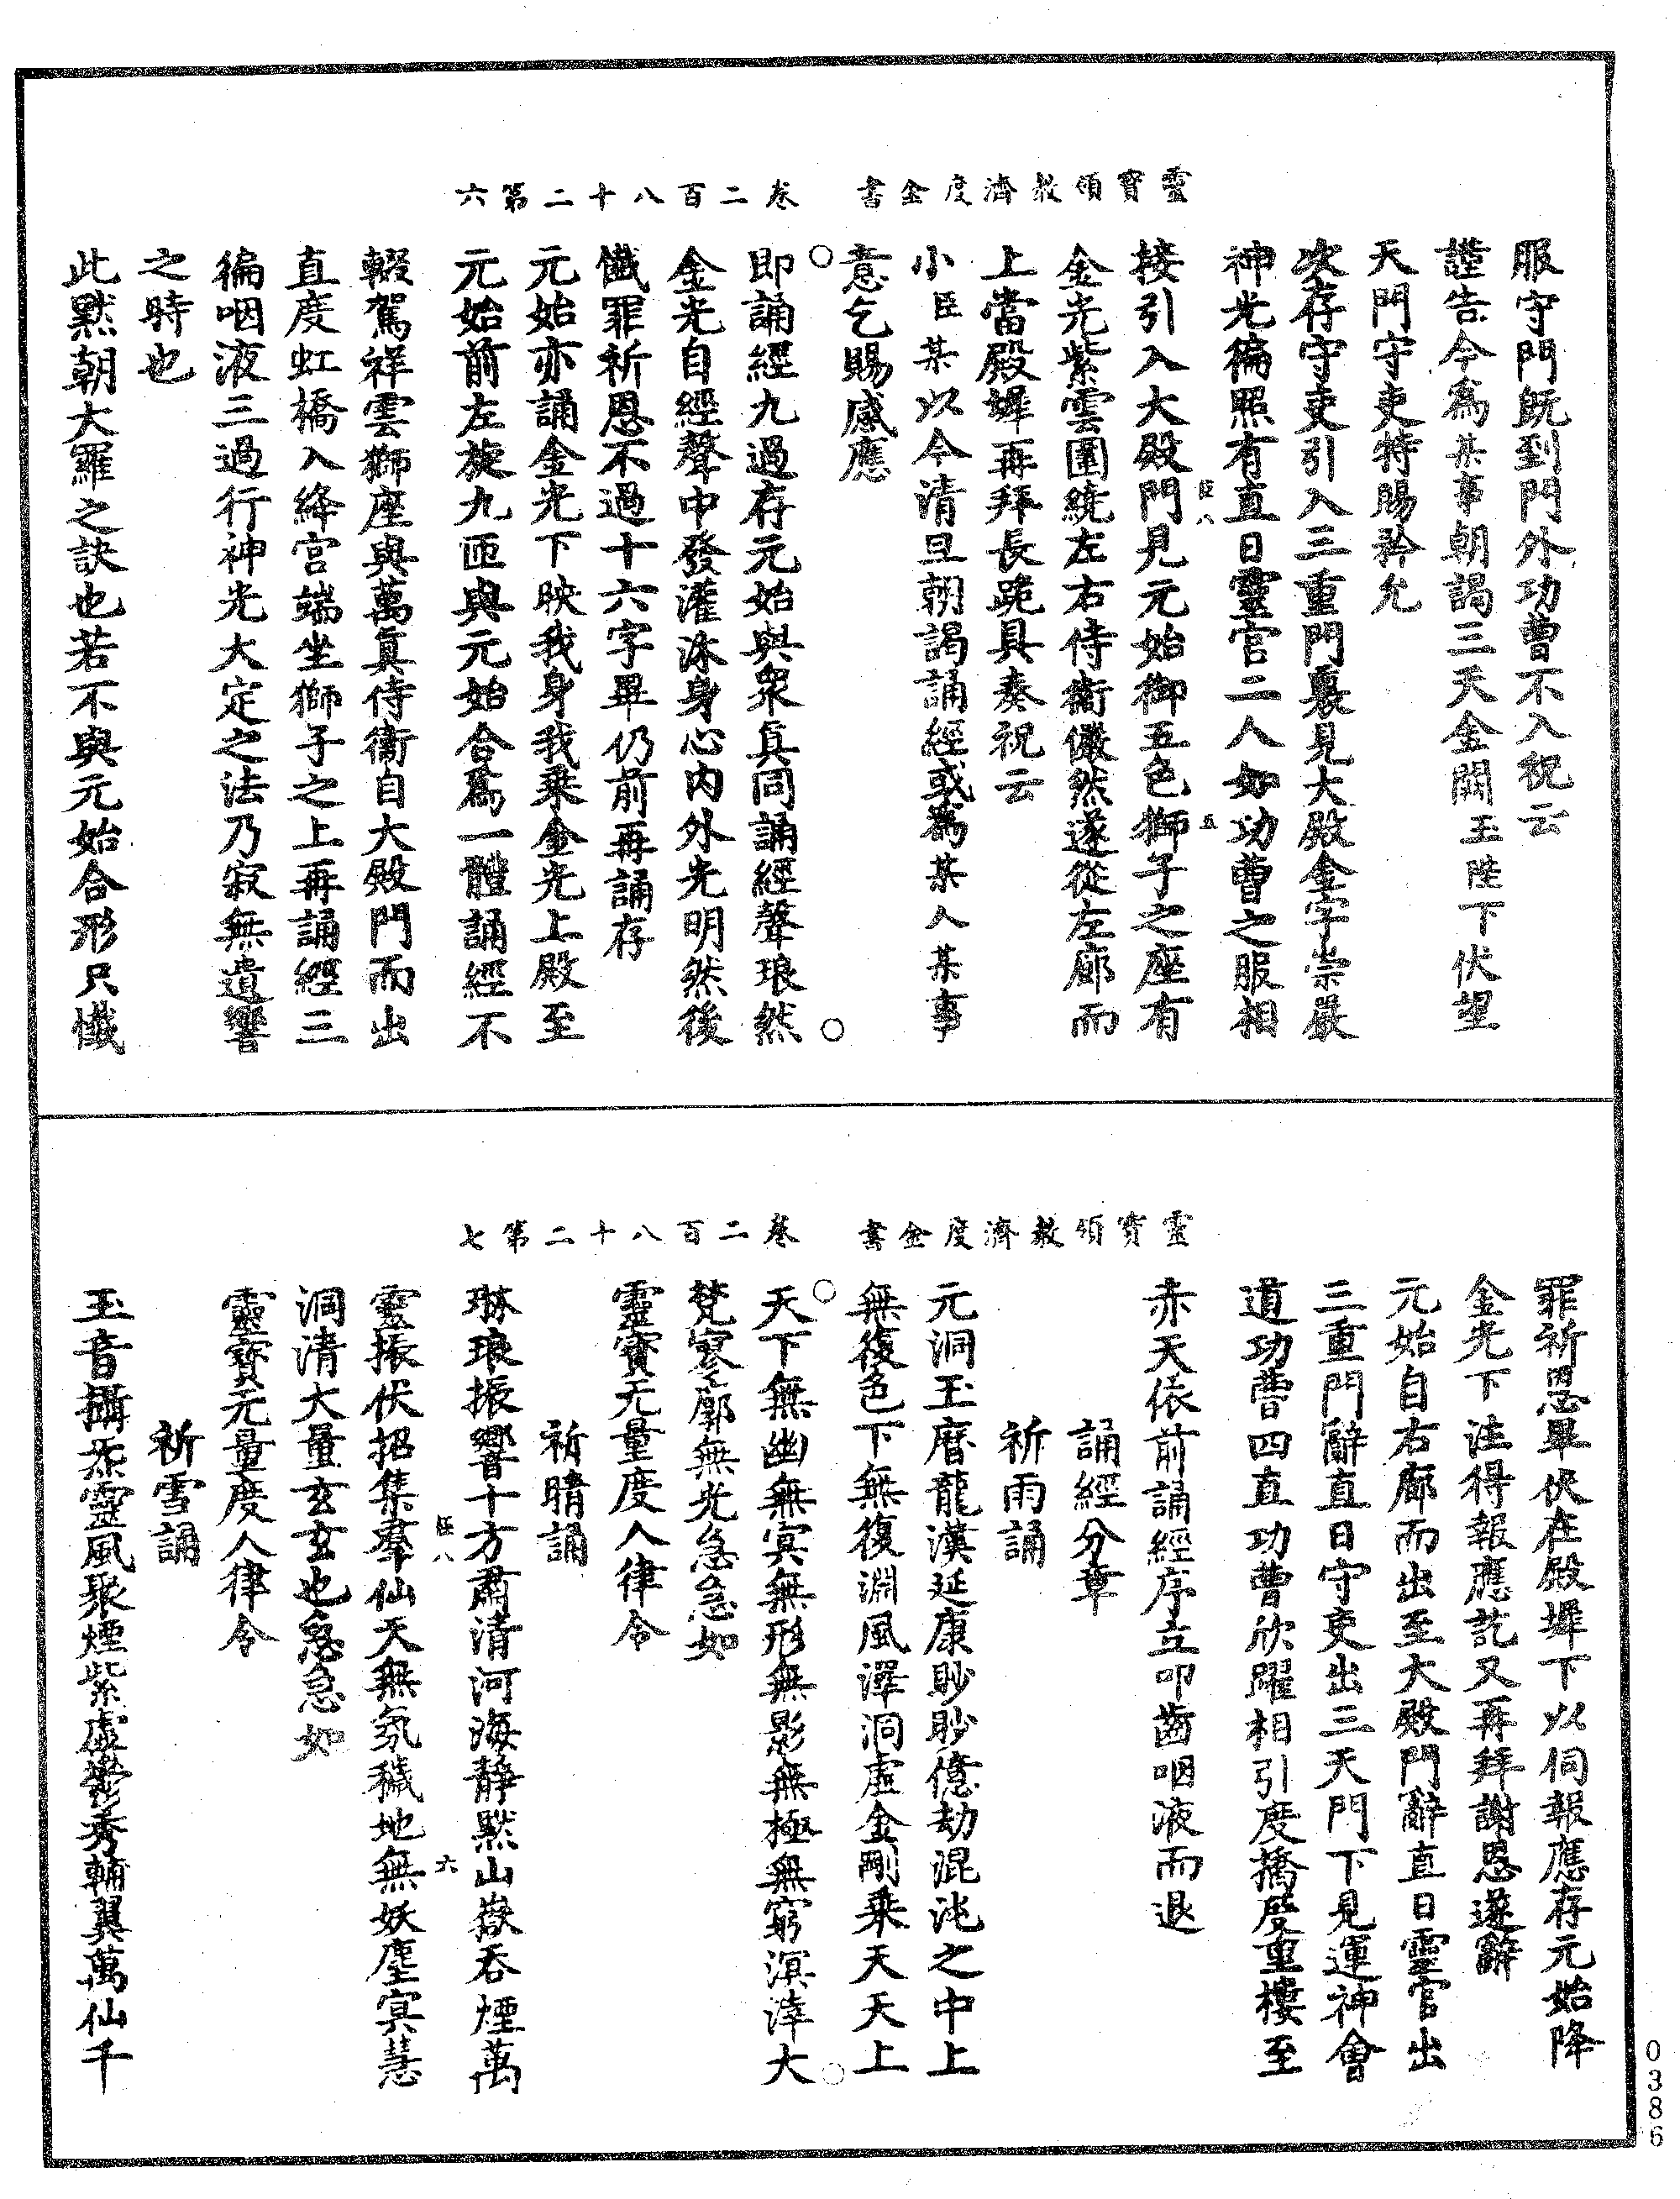 靈寶領教濟度金書 卷二百八十二第六
服守門既到門外功曹不入祝云
謹告今為某事朝謁三天金闕玉陛下伏望
天門守吏特賜矜允
次存守吏引入三重門裏見大殿金字崇嚴
神光徧照有直日靈官二人如功曹之服相
接引入大殿門見元始御五色獅子之座有
金光紫雲圍繞左右侍衛儼然遂從左廊而
上當殿墀再拜長跪具奏祝云
小臣某以今清旦朝謁誦經或為某人某事
意乞賜感應
即誦經九過存元始與衆真同誦經聲琅然
金光自經聲中發灌泳身心內外光明然後
懺罪祈恩不過十六字畢仍前再誦存
元始亦誦金光下映我身我乘金光上殿至
元始前左旋九匝與元始合為一體誦經不
輟駕祥雲獅座與萬真侍衛自大殿門而出
直度虹橋入絳宮端坐獅子之上再誦經三
徧咽液三過行神光大定之法乃寂無遺響
之時也
此默朝大羅之訣也若不與元始合形只懺
靈寶領教濟度金書 卷二百八十二第七
罪祈恩畢伏在殿墀下以伺報應存元始降
金光下注得報應訖又再拜謝恩遂辭
元始自右廊而出至大殿門辭直日靈官出
三重門辭直日守吏出三天門下見運神會
道功曹四直功曹欣躍相引度橋歷重樓至
赤天依前誦經序立叩齒咽液而退
誦經分章
祈雨誦
元洞玉曆龍漢延康眇眇億劫混沌之中上
無復色下無復淵風澤洞虛金剛乘天天上
天下無幽無冥無形無影無極無窮溟涬大
梵寥廓無光急急如
靈寶无量度人律令
祈晴誦
琳琅振響十方肅清河海靜默山嶽吞煙萬
靈振伏招集羣仙天無氛穢地無妖塵冥慧
洞清大量玄玄也急急如
靈寶无量度人律令
祈雪誦
玉音攝炁靈風聚煙紫虛鬱秀輔翼萬仙千
臣八
五
臣八
六
0386